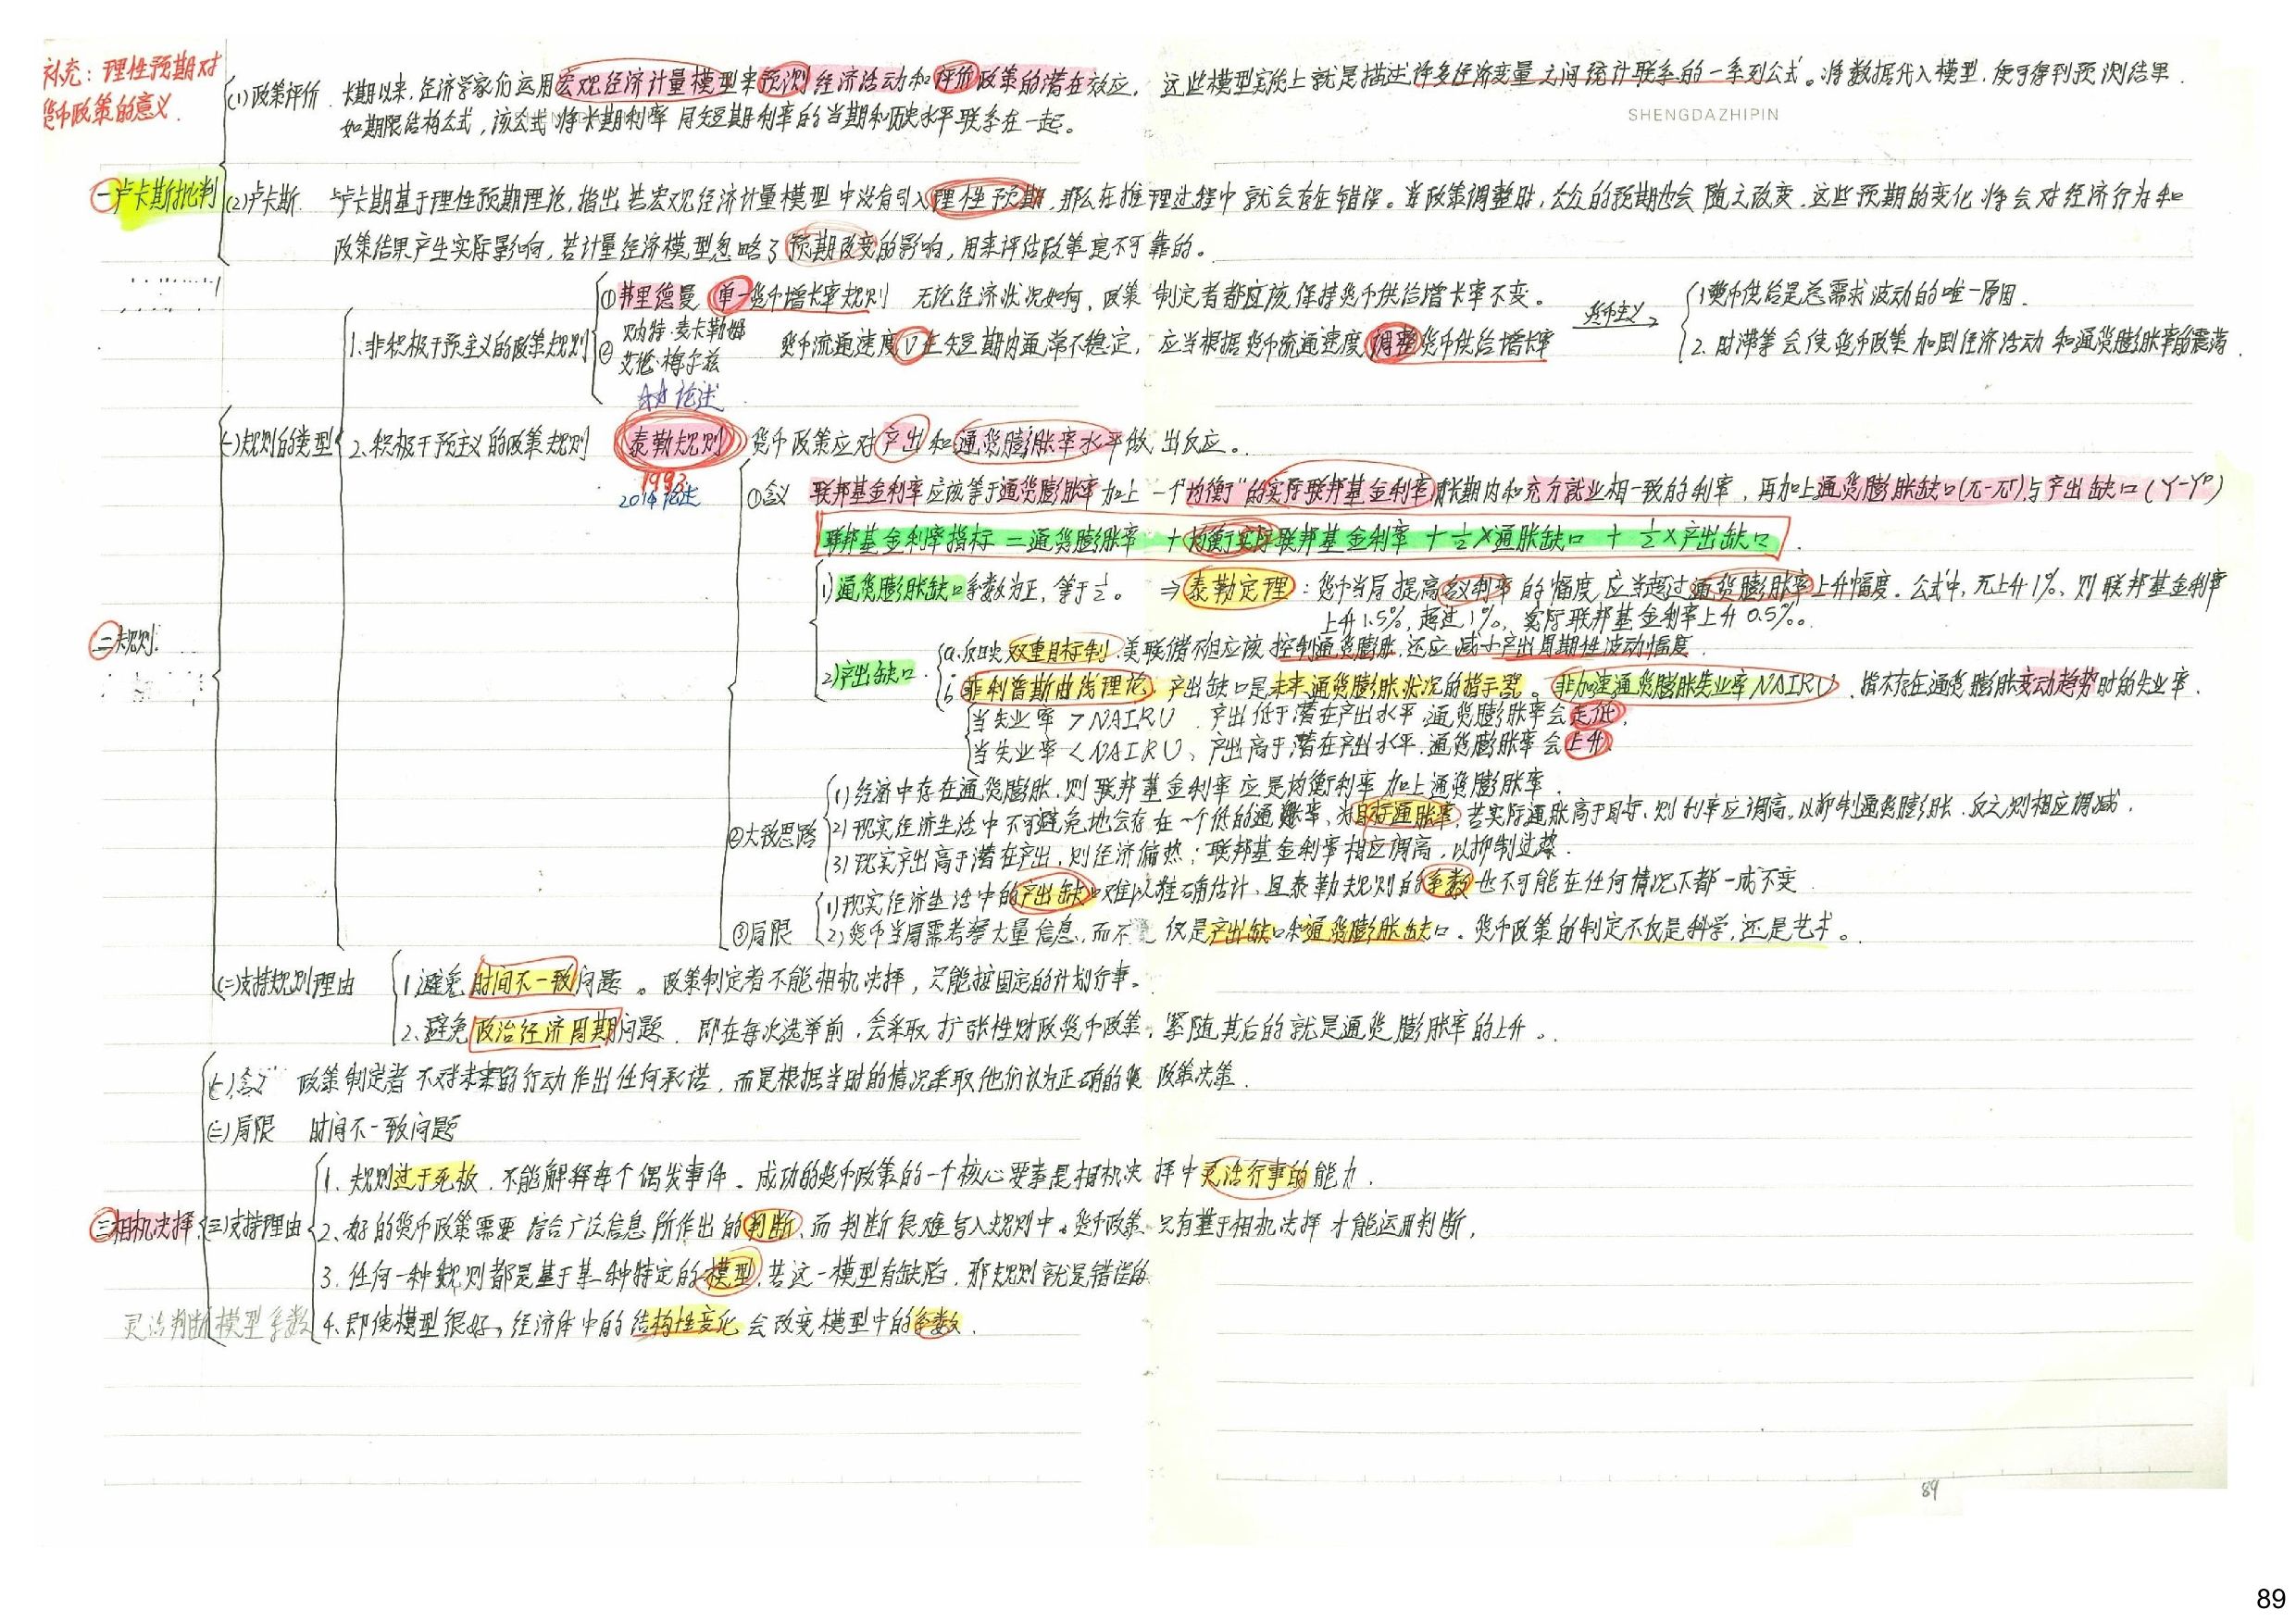 补充：理性预期对
货币政策的意义.
(1)政策评价 长期以来,经济学家们运用宏观经济计量模型来预测经济活动和评价政策的潜在效应, 这些模型实际上就是描述许多经济变量之间统计联系的一系列公式。将数据代入模型,便可得到预测结果.
SHENGDAZHIPIN
如期限结构公式,该公式将长期利率同短期利率的当期和历史水平联系在一起。
一卢卡斯批判
(2)卢卡斯 卢卡期基于理性预期理论,指出若宏观经济计量模型中没有引入理性预期,那么在推理过程中就会存在错误。当政策调整时,公众的预期也会随之改变.这些预期的变化将会对经济行为和
政策结果产生实际影响,若计量经济模型忽略了预期改变的影响,用来评估政策是不可靠的。
二规则.
(一)规则的类型
1.非积极干预主义的政策规则
①弗里德曼 单一货币增长率规则 无论经济状况如何,政策制定者都应该保持货币供给增长率不变。
货币主义
1货币供给是总需求波动的唯一原因.
2.时滞等会使货币政策加剧经济活动和通货膨胀率的震荡.
② 贝纳特·麦卡勒姆
艾伦·梅尔兹
货币流通速度V在短期内通常不稳定,应当根据货币流通速度调整货币供给增长率
论述
2.积极干预主义的政策规则 泰勒规则 货币政策应对产出和通货膨胀率水平做出反应。
1993
2014论述
①含义 联邦基金利率应该等于通货膨胀率加上一个"均衡"的实际联邦基金利率(长期内和充分就业相一致的利率,再加上通货膨胀缺口(π-π*)与产出缺口(Y-Yᴾ)
联邦基金利率指标 = 通货膨胀率 + 均衡实际联邦基金利率 + ½×通胀缺口 + ½×产出缺口
1)通货膨胀缺口系数为正,等于½。 ⇒泰勒定理:货币当局提高名义利率的幅度应当超过通货膨胀率上升幅度. 公式中,π上升1%,则联邦基金利率
上升1.5%,超过1%,实际联邦基金利率上升0.5%。
2)产出缺口
a.反映双重目标制.美联储不但应该控制通货膨胀,还应减小产出周期性波动幅度.
b.菲利普斯曲线理论,产出缺口是未来通货膨胀状况的指示器。非加速通货膨胀失业率NAIRU,指不存在通货膨胀变动趋势时的失业率.
当失业率>NAIRU,产出低于潜在产出水平,通货膨胀率会走低,
当失业率<NAIRU、产出高于潜在产出水平.通货膨胀率会上升.
②大致思路
(1)经济中存在通货膨胀,则联邦基金利率应是均衡利率加上通货膨胀率.
2)现实经济生活中不可避免地会存在一个低的通胀率、为目标通胀率,若实际通胀高于目标,则利率应调高,以抑制通货膨胀.反之则相应调减.
3)现实产出高于潜在产出,则经济偏热;联邦基金利率相应调高,以抑制过热.
③局限
(1)现实经济生活中的产出缺口难以准确估计、且泰勒规则的系数也不可能在任何情况下都一成不变.
(2)货币当局需考察大量信息,而不仅是产出缺口和通货膨胀缺口。货币政策的制定不仅是科学,还是艺术。
(二)支持规则理由
1.避免时间不一致问题。政策制定者不能相机抉择,只能按固定的计划行事。
2.避免政治经济周期问题.即在每次选举前,会采取扩张性财政货币政策,紧随其后的就是通货膨胀率的上升。
三相机抉择
(一)含义 政策制定者不对未来的行动作出任何承诺,而是根据当时的情况采取他们认为正确的货 政策决策.
(二)局限 时间不一致问题
(三)支持理由
1.规则过于死板.不能解释每个偶发事件。成功的货币政策的一个核心要素是相机决择中灵活行事的能力.
2.好的货币政策需要综合广泛信息所作出的判断,而判断很难写入规则中。货币政策只有基于相机决择才能运用判断,
3.任何一种规则都是基于某一种特定的模型,若这一模型有缺陷,那规则就是错误的
4.即使模型很好,经济体中的结构性变化会改变模型中的系数.
灵活判断模型系数
89
89